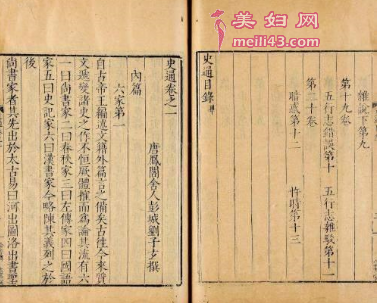 美妇网
meili43.com
雜說下第九
第十九卷
五行志錯誤第十 五行志雜駁第十一
第二十卷
暗惑第十二 忤時第十三
史通目錄
史通卷之一
唐鳳閣舍人彭城劉子玄撰
內篇
六家第一
自古帝王編述文籍外篇言之備矣古往今來質
文遞變諸史之作不恒厥體榷而為論其流有六
一曰尚書家二曰春秋家三曰左傳家四曰國語
家五曰史記家六曰漢書家今略陳其義列之於
後
尚書家者其先出於太古易曰河出圖洛出書聖